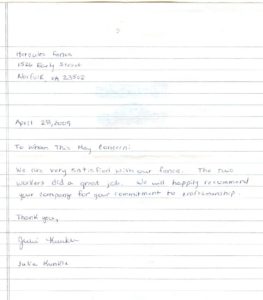 Hercules Fence
1526 Early Street
Norfolk, VA 23502
April 28, 2009
To Whom This May Concern:
We are very satisfied with our fence. The two
workers did a great job. We will happily recommend
your company for your commitment to
Thank you,
Julie Kunkle